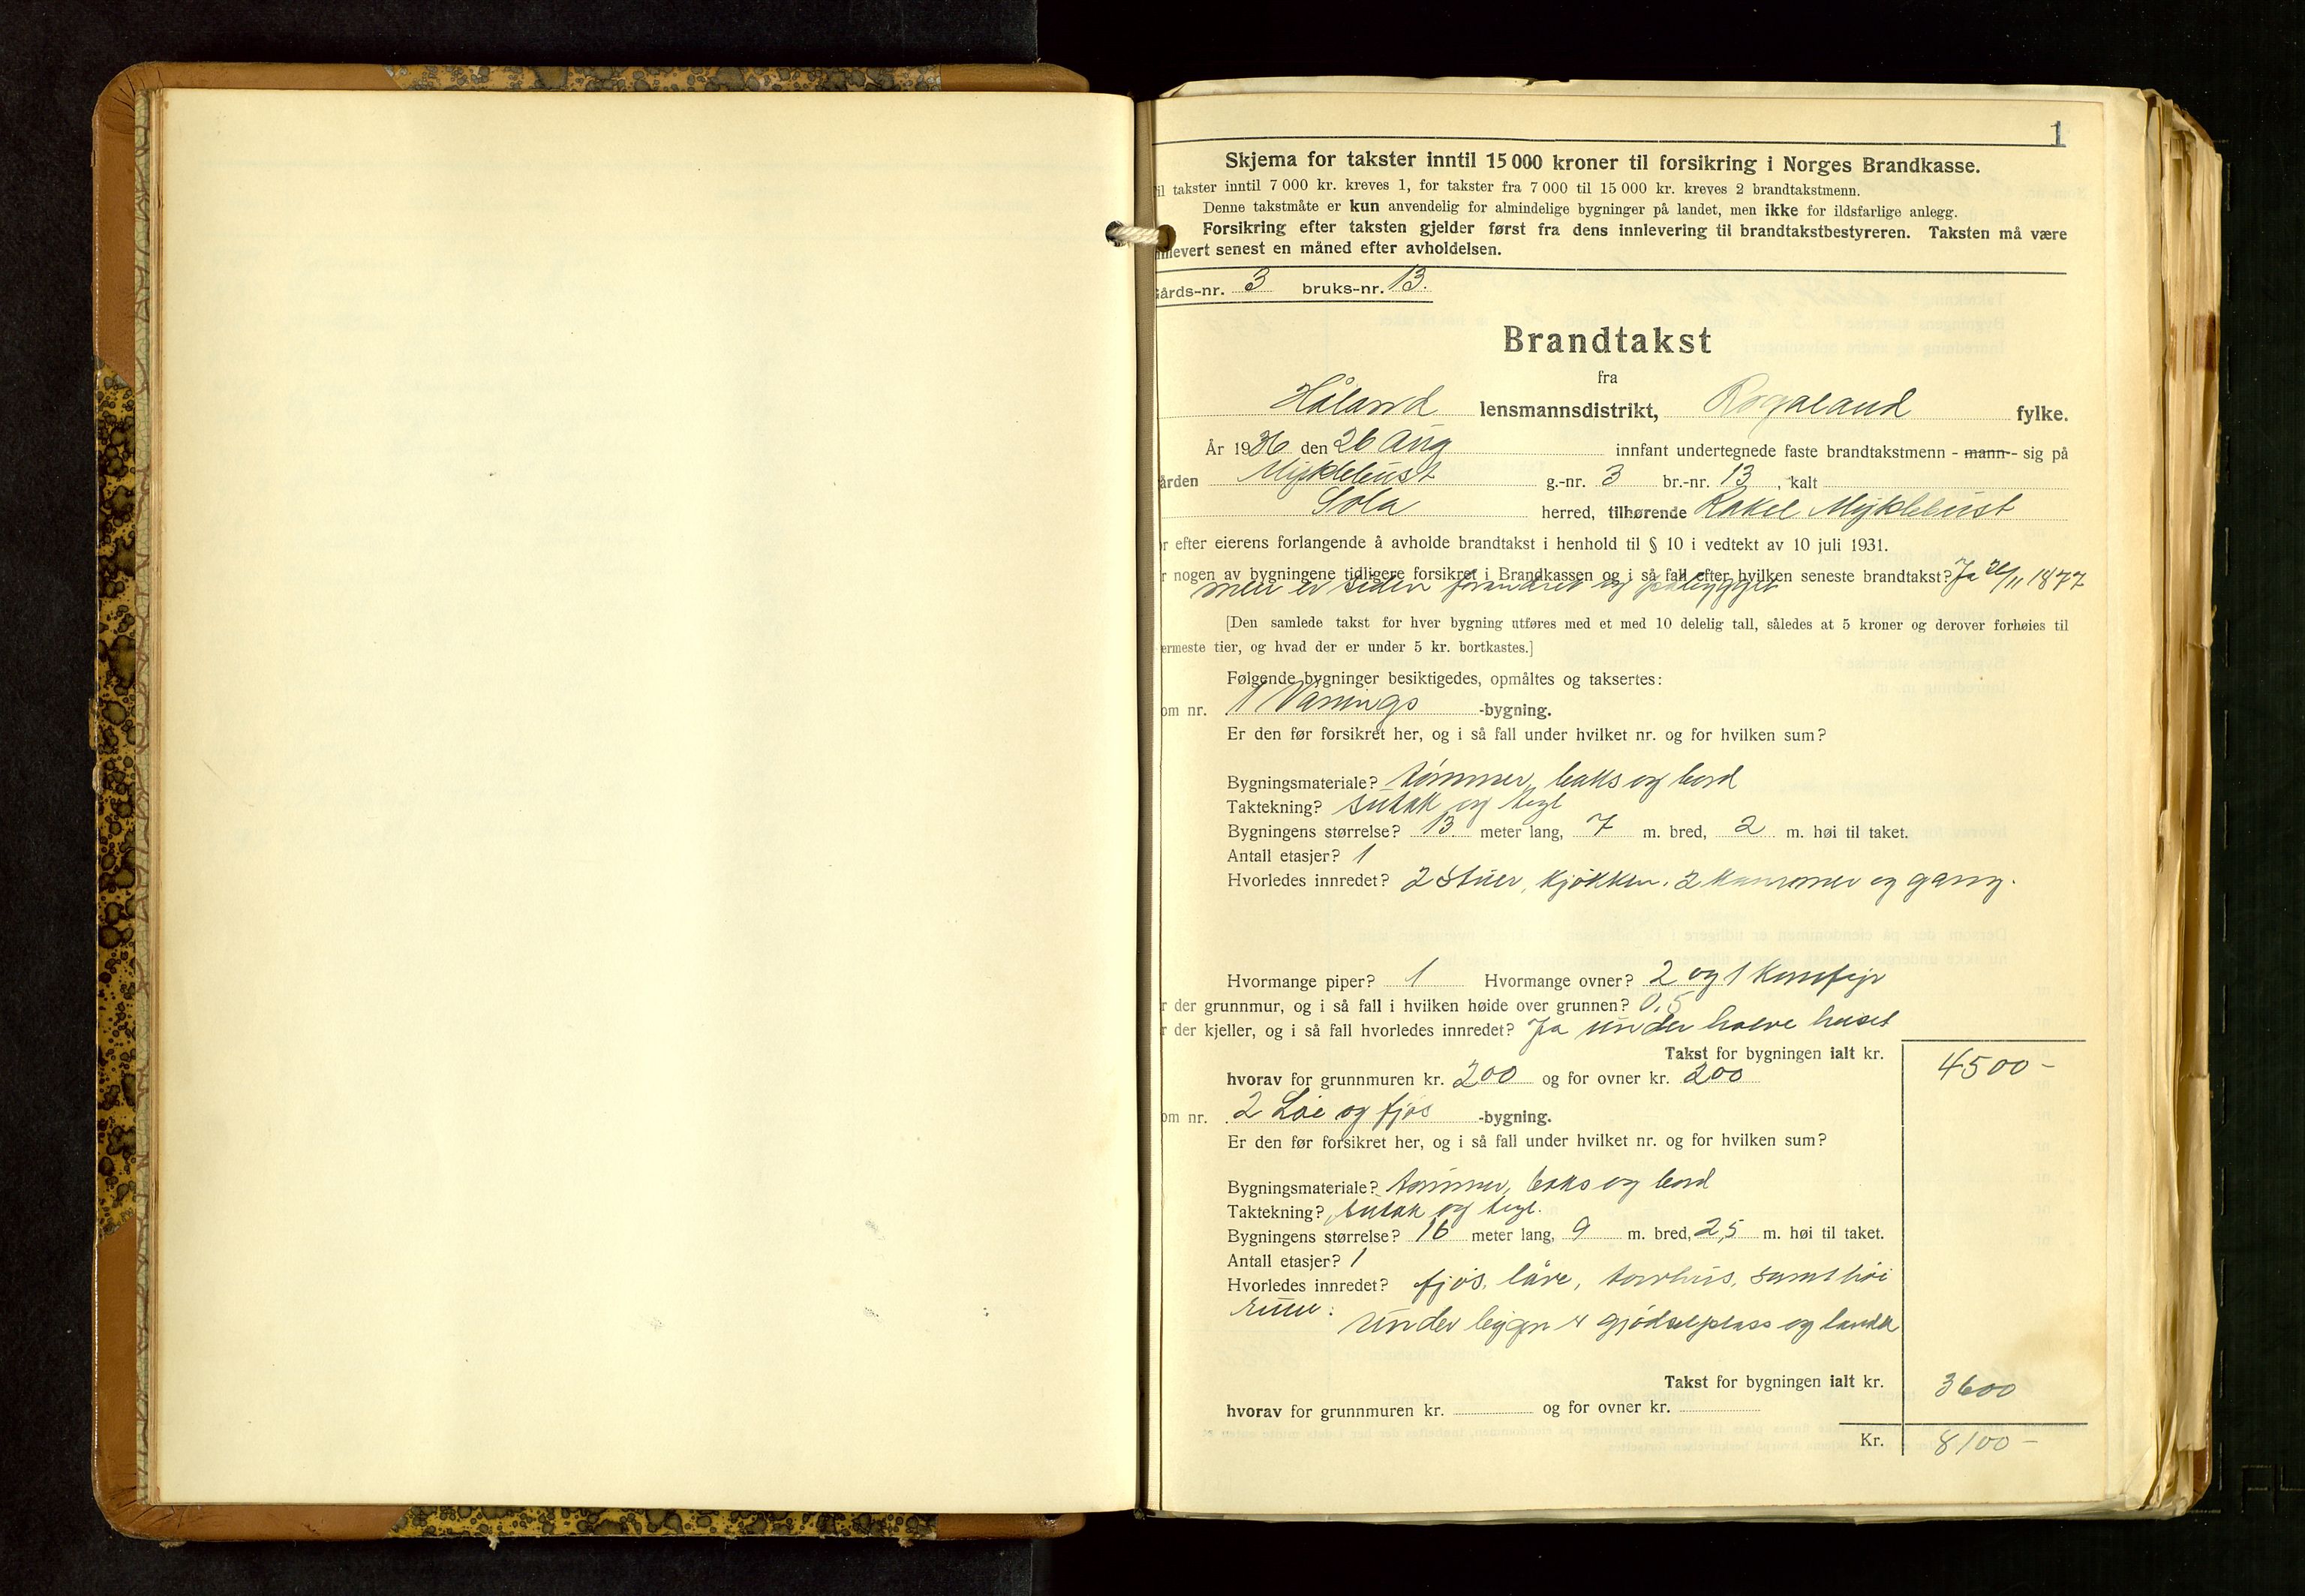 1
Skjema for takster inntil 15 000 kroner til forsikring i Norges Brandkasse.
il takster inntil 7 000 kr. kreves 1, for takster fra 7 000 til 15 000 kr. kreves 2 brandtakstmenn.
Denne takstmåte er kun anvendelig for almindelige bygninger på landet, men ikke for ildsfarlige anlegg.
Forsikring efter taksten gjelder først fra dens innlevering til brandtakstbestyreren. Taksten må være
nnlevert senest en måned efter avholdelsen.
årds-nr. 3 bruks-nr. 13.
Brandtakst
fra
Håland lensmannsdistrikt, Rogaland fylke.
År 1936 den 26 Aug innfant undertegnede faste brandtakstmenn - mann - sig på
ården Myklebust g.-nr. 3 br.-nr. 13, kalt
Sola herred, tilhørende Rakel Myklebust
r efter eierens forlangende å avholde brandtakst i henhold til § 10 i vedtekt av 10 juli 1931.
r nogen av bygningene tidligere forsikret i Brandkassen og i så fall efter hvilken seneste brandtakst? Ja 26/11 1877
men er siden forandret og påbygget
[Den samlede takst for hver bygning utføres med et med 10 delelig tall, således at 5 kroner og derover forhøies til
ermeste tier, og hvad der er under 5 kr. bortkastes.]
Følgende bygninger besiktigedes, opmåltes og taksertes:
om nr. 1 Vånings -bygning.
Er den før forsikret her, og i så fall under hvilket nr. og for hvilken sum?
Bygningsmateriale? tømmer, baks og bord
Taktekning? sutak og tegl
Bygningens størrelse? 13 meter lang, 7 m. bred, 2 m. høi til taket.
Antall etasjer? 1
Hvorledes innredet? 2 stuer, kjøkken, 2 kammer og gang.
Hvormange piper? 1 Hvormange ovner? 2 og 1 komfyr
r der grunnmur, og i så fall i hvilken høide over grunnen? 0,5
r der kjeller, og i så fall hvorledes innredet? Ja under halve huset
Takst for bygningen ialt kr. 4500 -
hvorav for grunnmuren kr. 200 og for ovner kr. 200
om nr. 2 Løe og fjøs -bygning.
Er den før forsikret her, og i så fall under hvilket nr. og for hvilken sum?
Bygningsmateriale? tømmer, baks og bord
Taktekning? sutak og tegl.
Bygningens størrelse? 16 meter lang, 9 m. bred, 2,5 m. høi til taket.
Antall etasjer? 1
Hvorledes innredet? fjøs, låve, torvhus, samt høi
rum:
under bygn gjødselplass og
Takst for bygningen ialt kr. 3600
hvorav for grunnmuren kr. og for ovner kr.
Kr. 8100 -